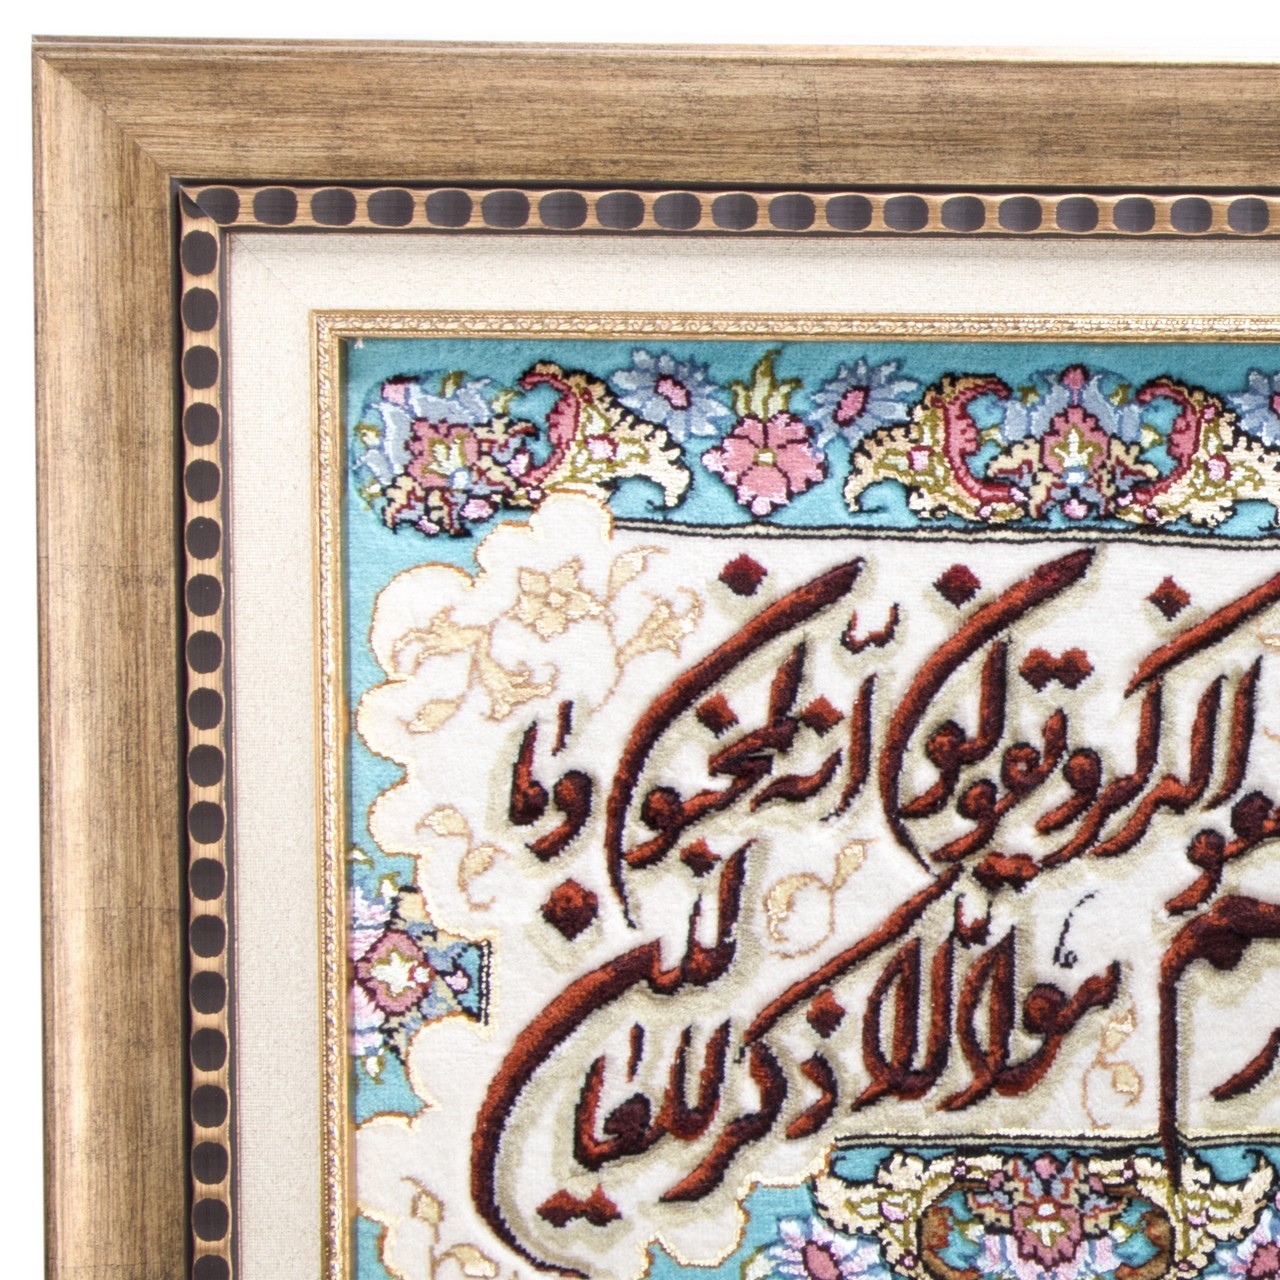 الذكر و يقولون إنه لمجنون و ما
هو إلا ذكر للعالمين